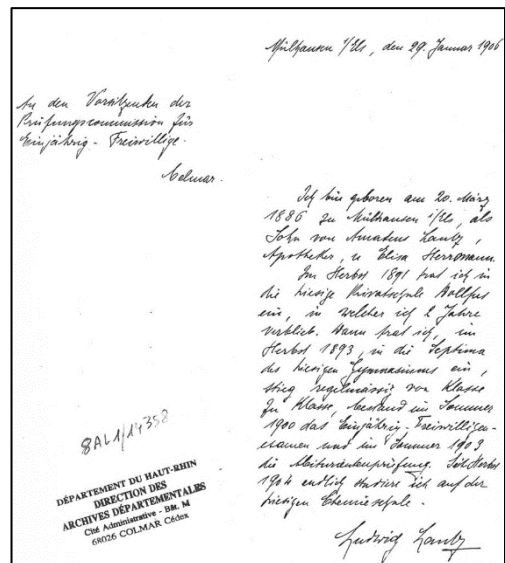 Mülhausen i/Els, den 29. Januar 1906
An den Vorsitzenden der
Prüfungscommission für
Einjährig-Freiwillige.
Colmar.
Ich bin geboren am 20. März
1886 zu Mülhausen i/Els, als
Sohn von Amadeus Lantz,
Apotheker, u Elisa Herrmann.
Im Herbst 1891 trat ich in
die hiesige Privatschule Dollfus
ein, in welcher ich 2 Jahre
verblieb. Dann trat ich, im
Herbst 1893, in die Septima
des hiesigen Gymnasiums ein,
stieg regelmässig von Klasse
zu Klasse, bestand im Sommer
1900 das Einjährig-Freiwilligen-
examen und im Sommer 1903
die Abiturientenprüfung. Seit Herbst
1904 endlich studiere ich auf der
hiesigen Chemieschule.
Ludwig Lantz
8AL1/14358
DÉPARTEMENT DU HAUT-RHIN
DIRECTION DES
ARCHIVES DÉPARTEMENTALES
Cité Administrative - Bât. M
68026 COLMAR Cédex